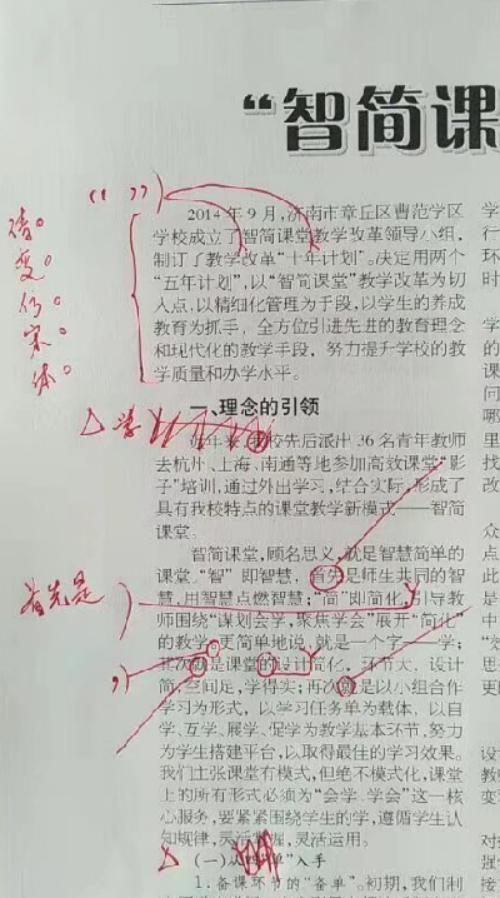 “智简课
“ ”
2014年9月,济南市章丘区曹范学区
学校成立了智简课堂教学改革领导小组,
制订了教学改革“十年计划”。决定用两个
“五年计划”,以“智简课堂”教学改革为切
入点,以精细化管理为手段,以学生的养成
教育为抓手,全方位引进先进的教育理念
和现代化的教学手段,努力提升学校的教
学质量和办学水平。
变。
仿。
宋。
体。
一、理念的引领
学
近年来,我校先后派出36名青年教师
去杭州、上海、南通等地参加高效课堂“影
子”培训,通过外出学习,结合实际,形成了
具有我校特点的课堂教学新模式——智简
课堂。
智简课堂,顾名思义,就是智慧简单的
课堂。“智”即智慧,首先是师生共同的智
慧,用智慧点燃智慧;“简”即简化,引导教
首先是
师围绕“谋划会学,聚焦学会”展开“简化”
的教学。更简单地说,就是一个字——学;
其次就是课堂的设计简化,环节大、设计
简,空间足,学得实;再次就是以小组合作
学习为形式,以学习任务单为载体,以自
学、互学、展学、促学为教学基本环节,努力
为学生搭建平台,以取得最佳的学习效果。
我们主张课堂有模式,但绝不模式化,课堂
上的所有形式必须为“会学、学会”这一核
心服务,要紧紧围绕学生的学,遵循学生认
知规律,灵活掌握,灵活运用。
(一)从 单”入手
1.备课环节的“备单”。初期,我们制
学
行
环
时
学
的
课
问
哪
里
找
改
众
点
此
是
中
“效
思
更
设
教
变
对
强
接